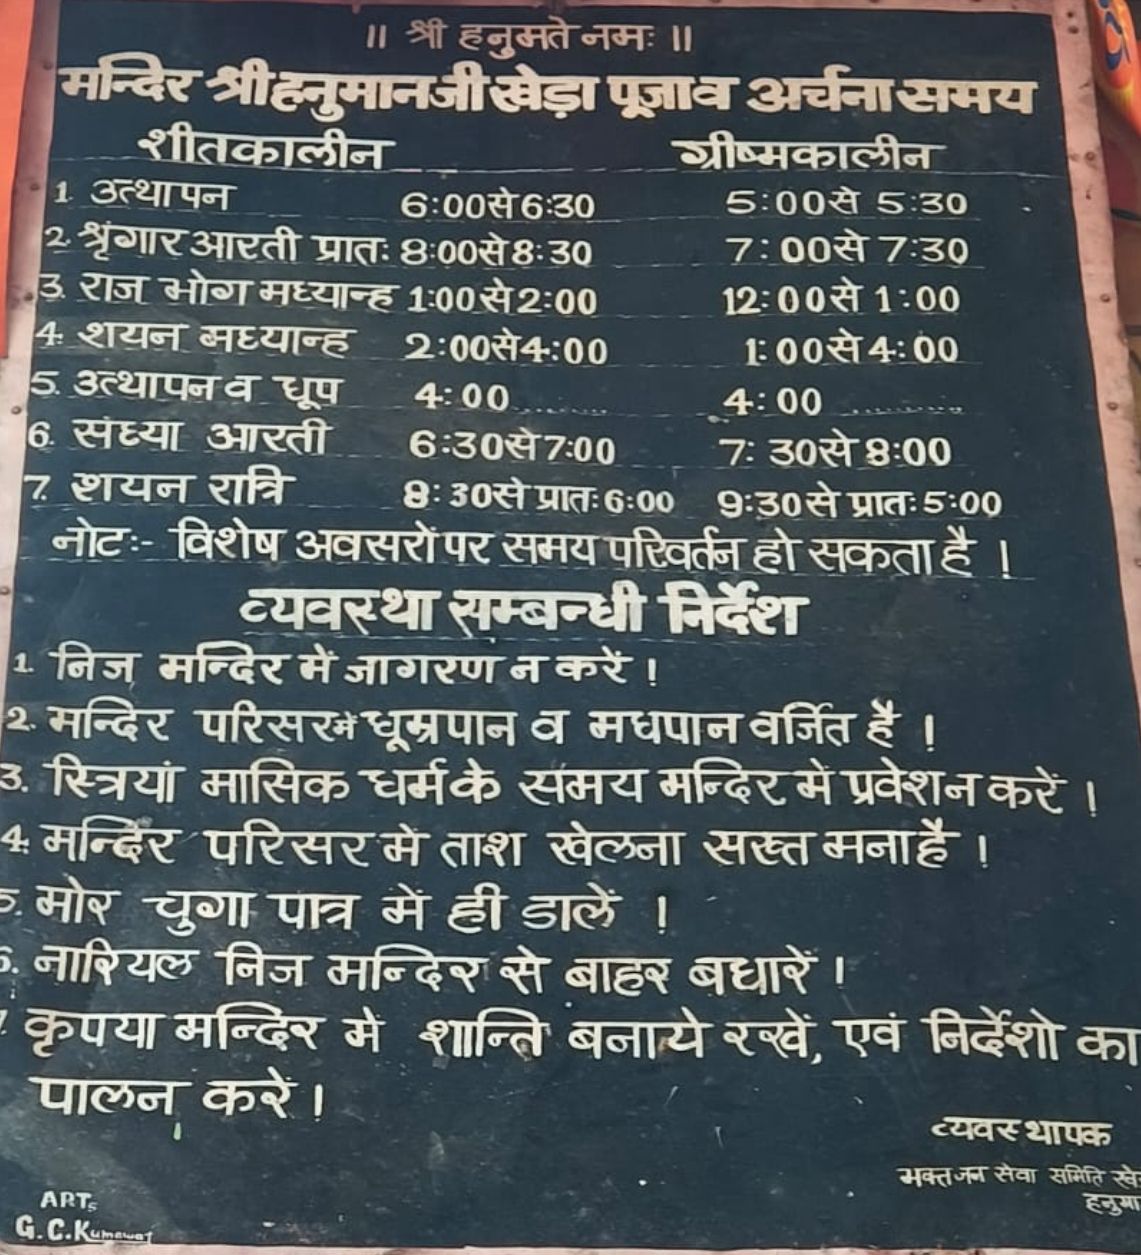 ॥ श्री हनुमते नमः ॥
मन्दिर श्री हनुमानजी खेड़ा पूजा व अर्चना समय
शीतकालीन ग्रीष्मकालीन
1. उत्थापन 6:00से 6:30 5:00से 5:30
2. श्रृंगार आरती प्रातः 8:00से 8:30 7:00से 7:30
3. राज भोग मध्यान्ह 1:00 से 2:00 12:00से 1:00
4. शयन मध्यान्ह 2:00से 4:00 1:00से 4:00
5. उत्थापन व धूप 4:00 ......... 4:00 ..........
6. संध्या आरती 6:30से 7:00 7:30से 8:00
7. शयन रात्रि 8:30से प्रातः 6:00 9:30से प्रातः 5:00
नोटः- विशेष अवसरों पर समय परिवर्तन हो सकता है ।
व्यवस्था सम्बन्धी निर्देश
1. निज मन्दिर में जागरण न करें !
2. मन्दिर परिसर में धूम्रपान व मधपान वर्जित है !
3. स्त्रियां मासिक धर्म के समय मन्दिर में प्रवेश न करें ।
4. मन्दिर परिसर में ताश खेलना सख्त मना है ।
5. मोर चुगा पात्र में ही डालें !
6. नारियल निज मन्दिर से बाहर बधारें ।
7. कृपया मन्दिर में शान्ति बनाये रखें, एवं निर्देशो का
पालन करें ।
व्यवस्थापक
भक्तजन सेवा समिति
ARTs
G.C.Kumawat